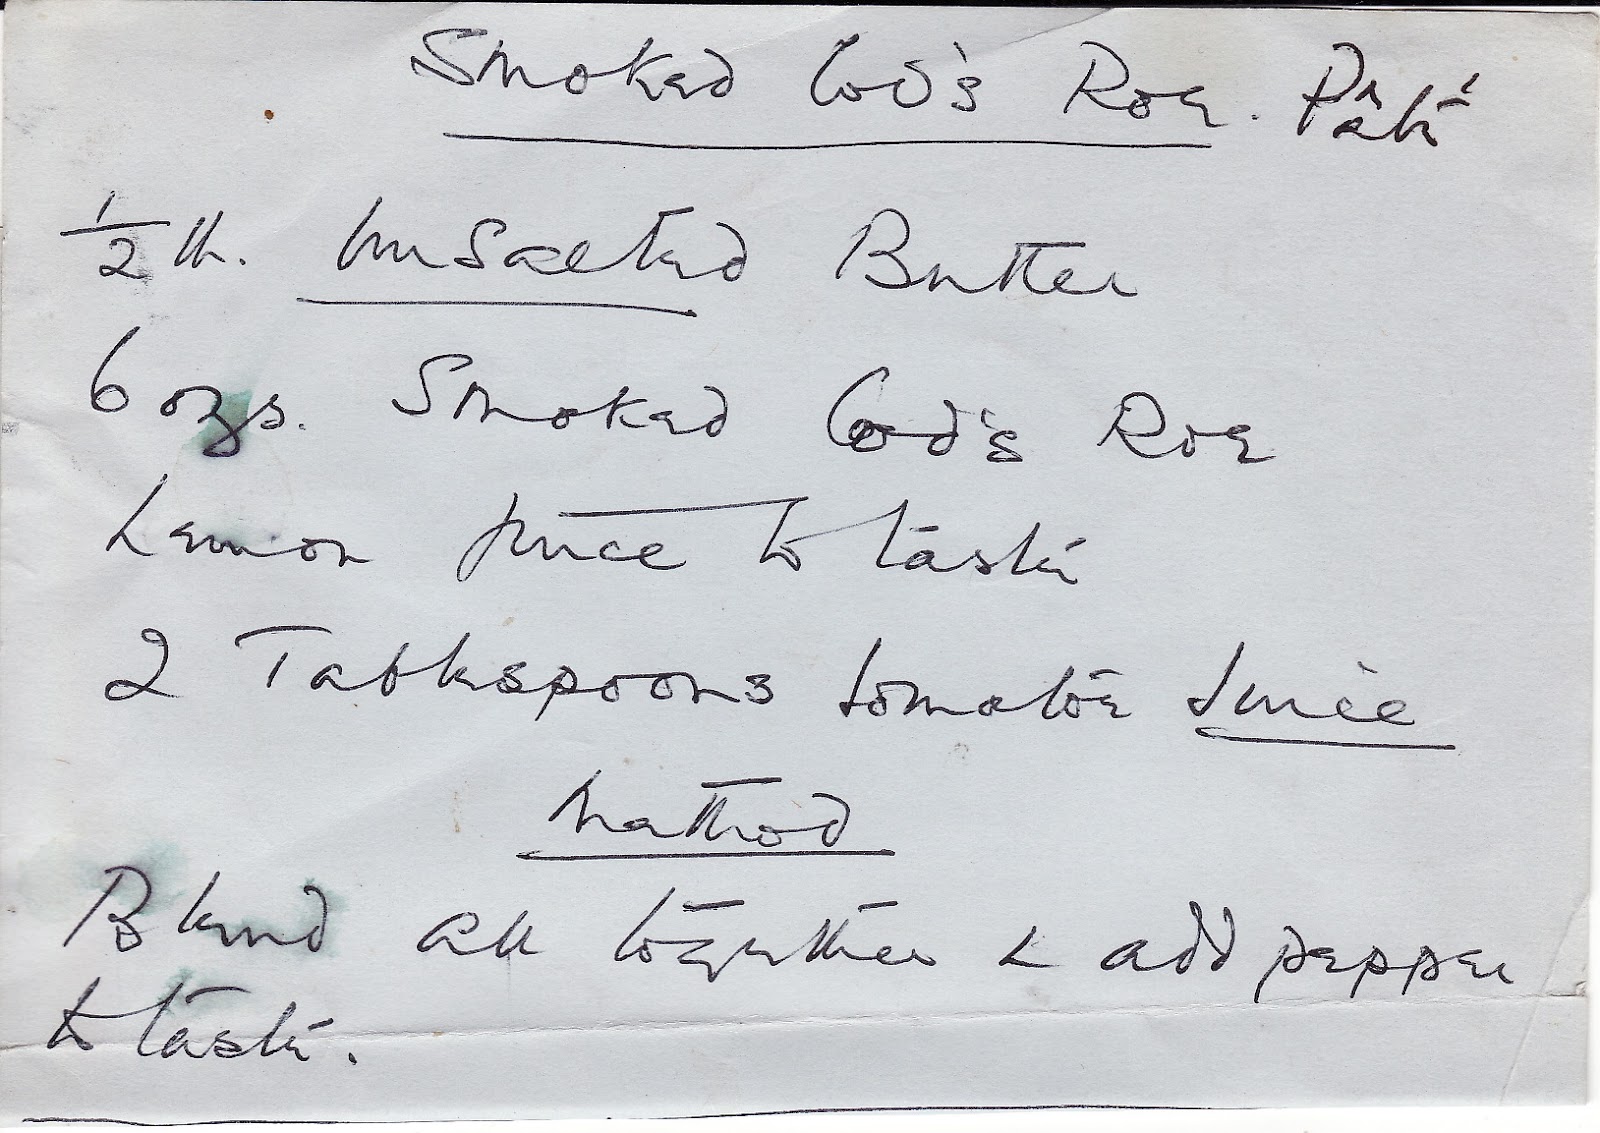 Smoked Cod's Roe. Pâté
1/2 lb. Unsalted Butter
6 ozs. Smoked Cod's Roe
Lemon juice to taste
2 Tablespoons tomatoe Juice
Method
Blend all together & add pepper
to taste.